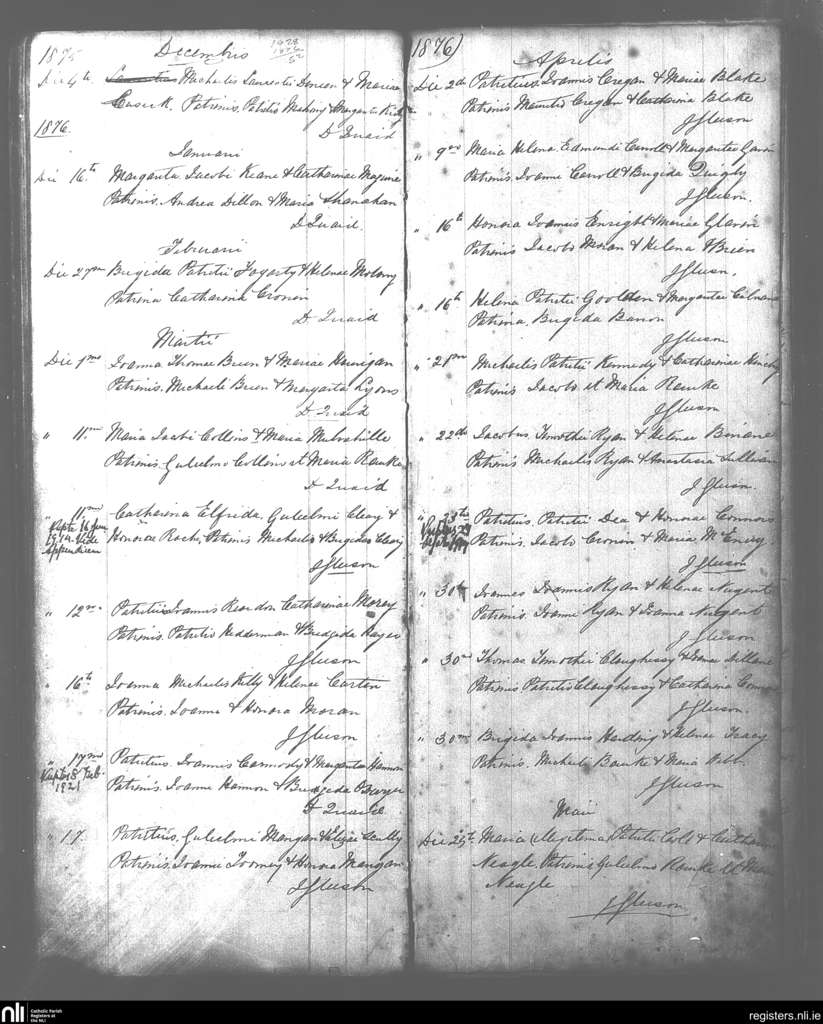 1875 Decembris 1928
1876
52
Die 4th Michaelis Laurentii Doreen & Maria
Cusick, Patrinis, Patritio Mahony & Margarita
D Quaid
1876.
Januarii
Die 16th Margarita Jacobi Keane & Catharinae Maguire
Patrinis. Andrea Dillon & Maria Shanahan
D Quaid.
Februarii
Die 27th Brigida Patritii Fogarty & Helenae Molony
Patrina Catharina Cronin
D. Quaid
Martii
Die 1mo Joanna Thomae Brien & Mariae Hannigan
Patrinis. Michaele Brien & Margarita Lyons
D Quaid
" 11mo Maria Jacobi Collins & Maria Mulvihille
Patrinis Gulielmo Collins et Maria Rourke
D Quaid
" 11mo Catharina Elfrida, Gulielmi Cleary &
Honora Roch, Patrinis Michaele & Brigida Cleary
Nupta 16 Jun
1914. Vide
Appendicem
J Gleeson
" 12mo Patritii Joannis Reardon Catharinae Morey
Patrinis. Patritio Hedderman & Bridgida Hayes
J Gleeson
" 16th Joanna Michaelis Kelly & Helenae Carton
Patrinis. Joanne & Honora Moran
J Gleeson
" 17mo Patritius. Joannis Carmody & Margarita Hannon
Nupts 8 Feb.
1921
Patrinis. Joanne Hannon & Bridgida Bowyer
D Quaid
" 17 Patritius. Gulielmi Mangan & Eliza Scully
Patrinis. Joanne Toomey & Honora Mangan
J Gleeson
1876)
Aprilis
Die 2do Patritius Joannis Cregan & Mariae Blake
Patrinis Mauritio Cregan & Catharina Blake
J Gleeson
" 9mo Maria Helena Edmundi Carroll & Margaritae Gavin
Patrinis. Joanne Carroll & Brigida Quigly
J Gleeson.
" 16th Honora Joannis Enright & Mariae Glavin
Patrinis Jacobo Moran & Helena O'Brien
J Gleeson.
" 16th Helena Patritii Goolden & Margaritae
Patrina, Brigida Banon
J Gleeson
" 21mo Michaelis Patritii Kennedy & Catharinae Hinchy
Patrinis Jacobo et Maria Rourke
J Gleeson
" 22do Jacobus Timothii Ryan & Helenae Biniane
Patrinis Michaelis Ryan & Anastasia Sullivan
J Gleeson.
" Patritius. Patritii Dea & Honorae Connors
Patrinis. Jacobo Cronin & Maria McEniry.
J Gleeson
" 30th Joannes Joannis Ryan & Helenae Nugent
Patrinis. Joanne Ryan & Joanna Nugent
J Gleeson
" 30mo Thomas Timothii Claughessy & Joanna Dillane
Patrinis Patritio Claughessy & Catharina
J Gleeson
" 30mo Brigida Joannis Harding & Helenae Tracy
Patrinis. Michaele Bourke & Maria Webb.
J Gleeson
Maii
Die Maria Illegitima Patritii & Catharina
Neagle, Patrinis Gulielmo Rourke et Maria
Neagle
J Gleeson
nli Catholic Parish
Registers at
the NLI
registers.nli.ie